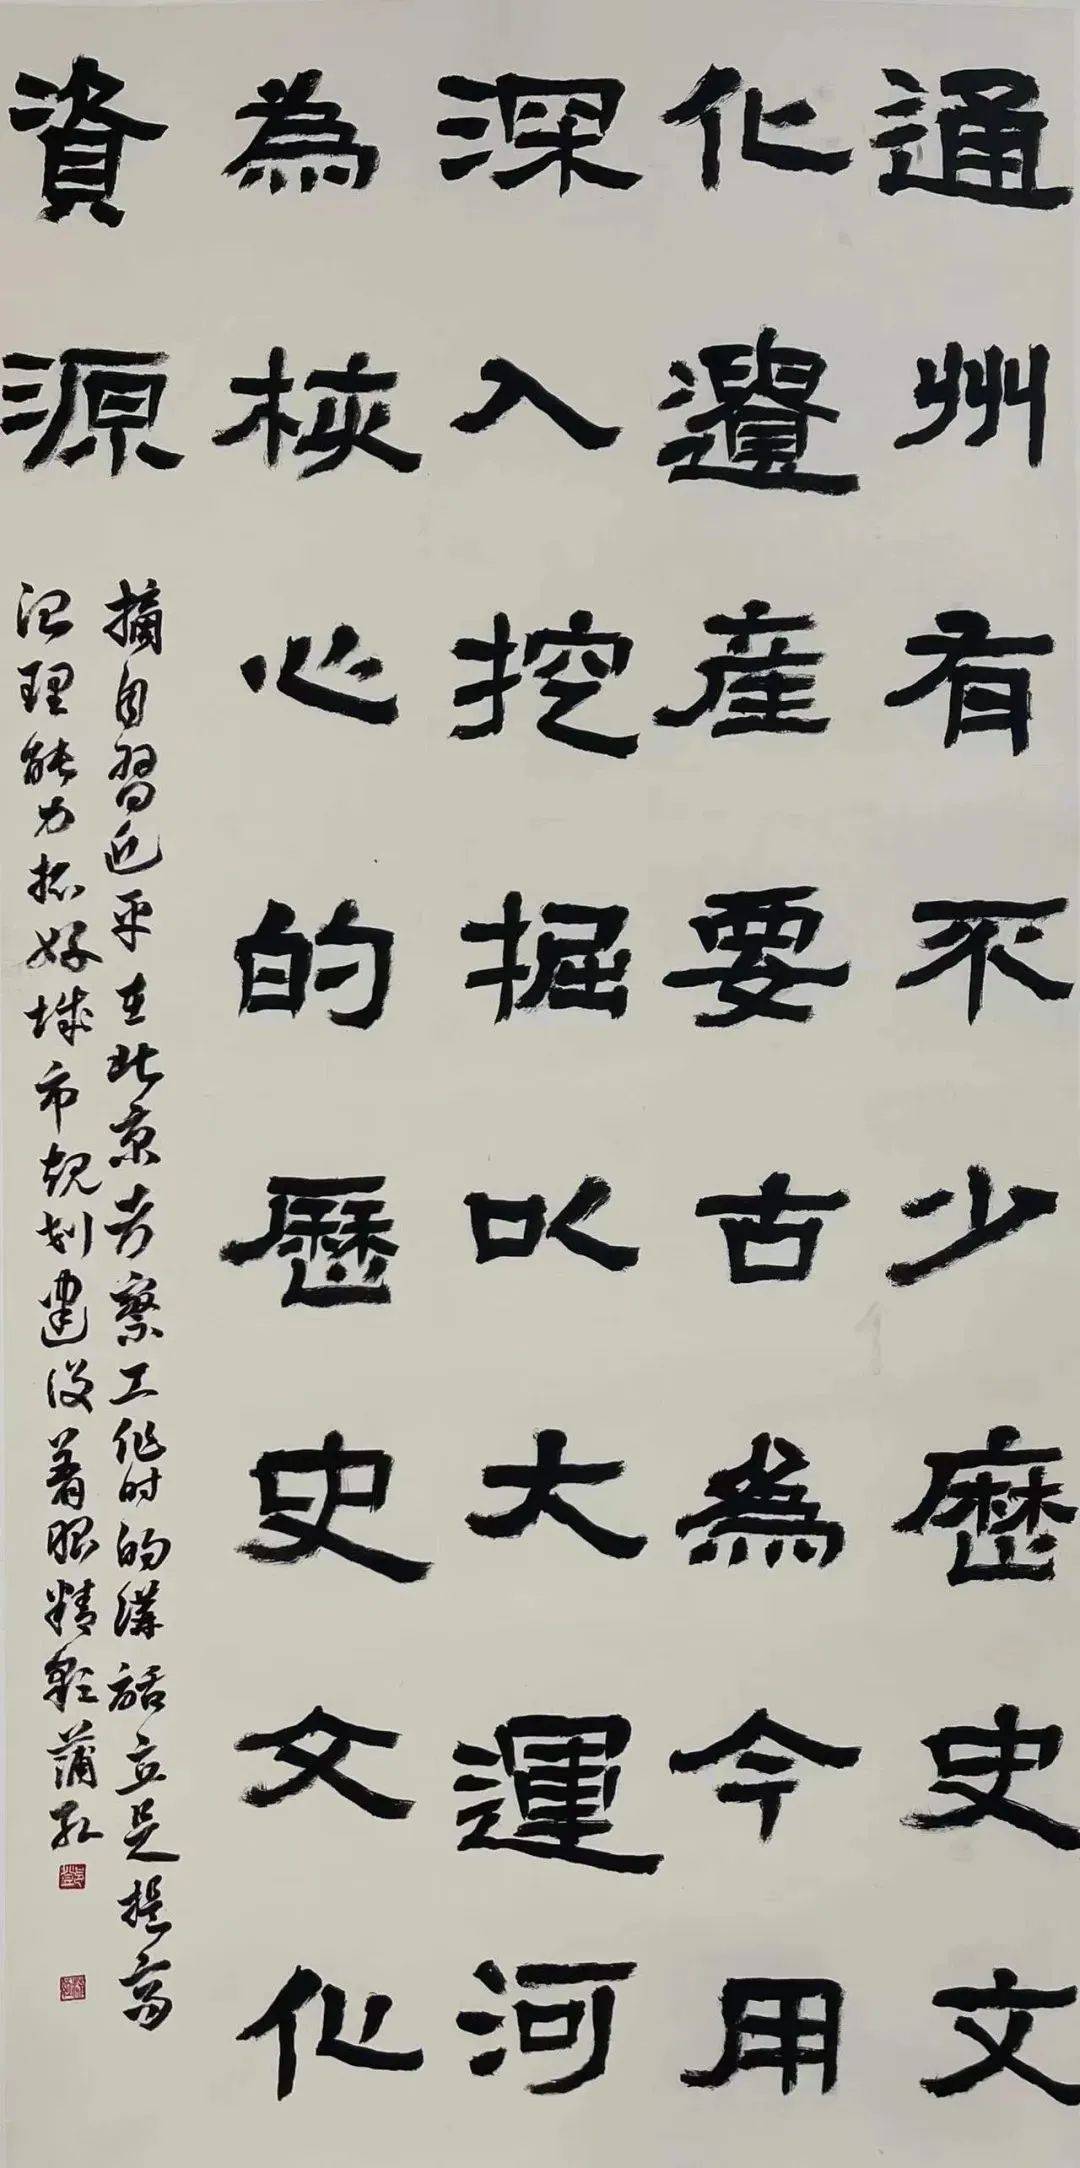 通州有不少歷史文
化遺產要古為今用
深入挖掘以大運河
為核心的歷史文化
資源
摘自習近平在北京考察工作时的講話立足提高
治理能力抓好城市規划建设着眼精彩蒲